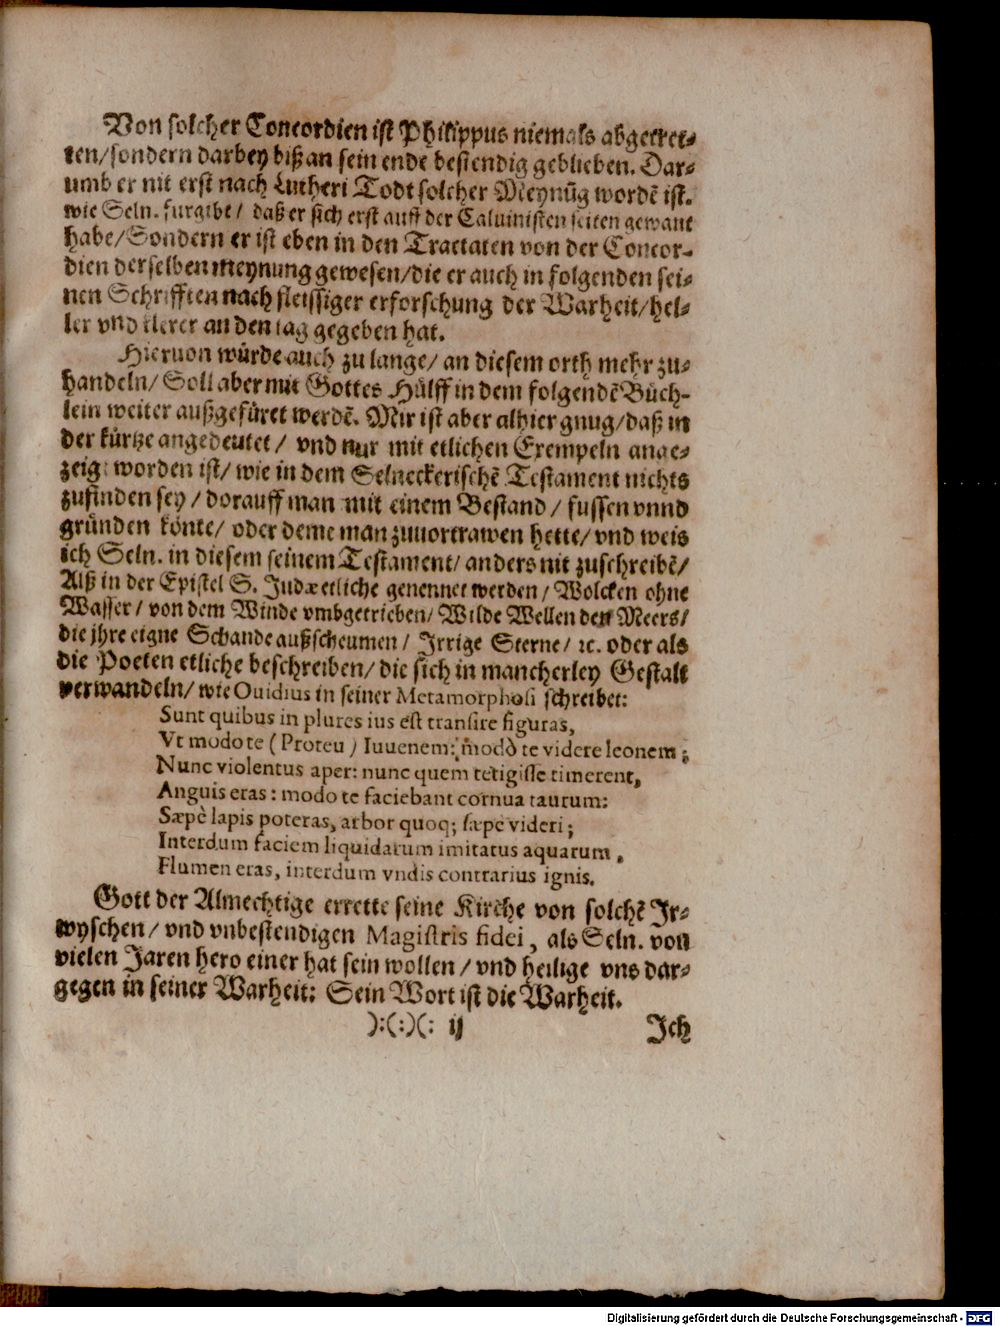 Von solcher Concordien ist Philippus niemals abgetret-
ten/sondern darbey biß an sein ende bestendig geblieben. Dar-
umb er nit erst nach Lutheri Todt solcher Meynũg wordẽ ist.
wie Seln. furgibt/ daß er sich erst auff der Caluinisten seiten gewant
habe/Sondern er ist eben in den Tractaten von der Concor-
dien derselben meynung gewesen/die er auch in folgenden sei-
nen Schrifften nach fleissiger erforschung der Warheit/hel-
ler vnd klerer an den tag gegeben hat.
Hieruon würde auch zu lange/ an diesem orth mehr zu-
handeln/ Soll aber mit Gottes Hülff in dem folgendẽ Büch-
lein weiter außgefüret werdẽ. Mir ist aber alhier gnug/daß in
der kürtze angedeutet/ vnd nur mit etlichen Exempeln ange-
zeigt worden ist/ wie in dem Selneckerischẽ Testament nichts
zufinden sey/ dorauff man mit einem Bestand/ fussen vnnd
gründen könte/ oder deme man zuuortrawen hette/ vnd weis
ich Seln. in diesem seinem Testament/ anders nit zuschreibẽ/
Alß in der Epistel S. Judæ etliche genennet werden/ Wolcken ohne
Wasser/ von dem Winde vmbgetrieben/ Wilde Wellen des Meers/
die jhre eigne Schande außscheumen/ Jrrige Sterne/ ꝛc. oder als
die Poeten etliche beschreiben/ die sich in mancherley Gestalt
verwandeln/ wie Ouidius in seiner Metamorphosi schreibet:
Sunt quibus in plures ius est transire figuras,
Vt modo te (Proteu) Iuuenem: modò te videre leonem;
Nunc violentus aper: nunc quem tetigisse timerent,
Anguis eras: modo te faciebant cornua taurum:
Sæpè lapis poteras, arbor quoq; sæpe videri;
Interdum faciem liquidarum imitatus aquarum,
Flumen eras, interdum vndis contrarius ignis.
Gott der Almechtige errette seine Kirche von solchẽ Jr-
wyschen/ vnd vnbestendigen Magistris fidei, als Seln. von
vielen Jaren hero einer hat sein wollen/ vnd heilige vns dar-
gegen in seiner Warheit: Sein Wort ist die Warheit.
):(:)(: ij Jch
Digitalisierung gefördert durch die Deutsche Forschungsgemeinschaft - DFG